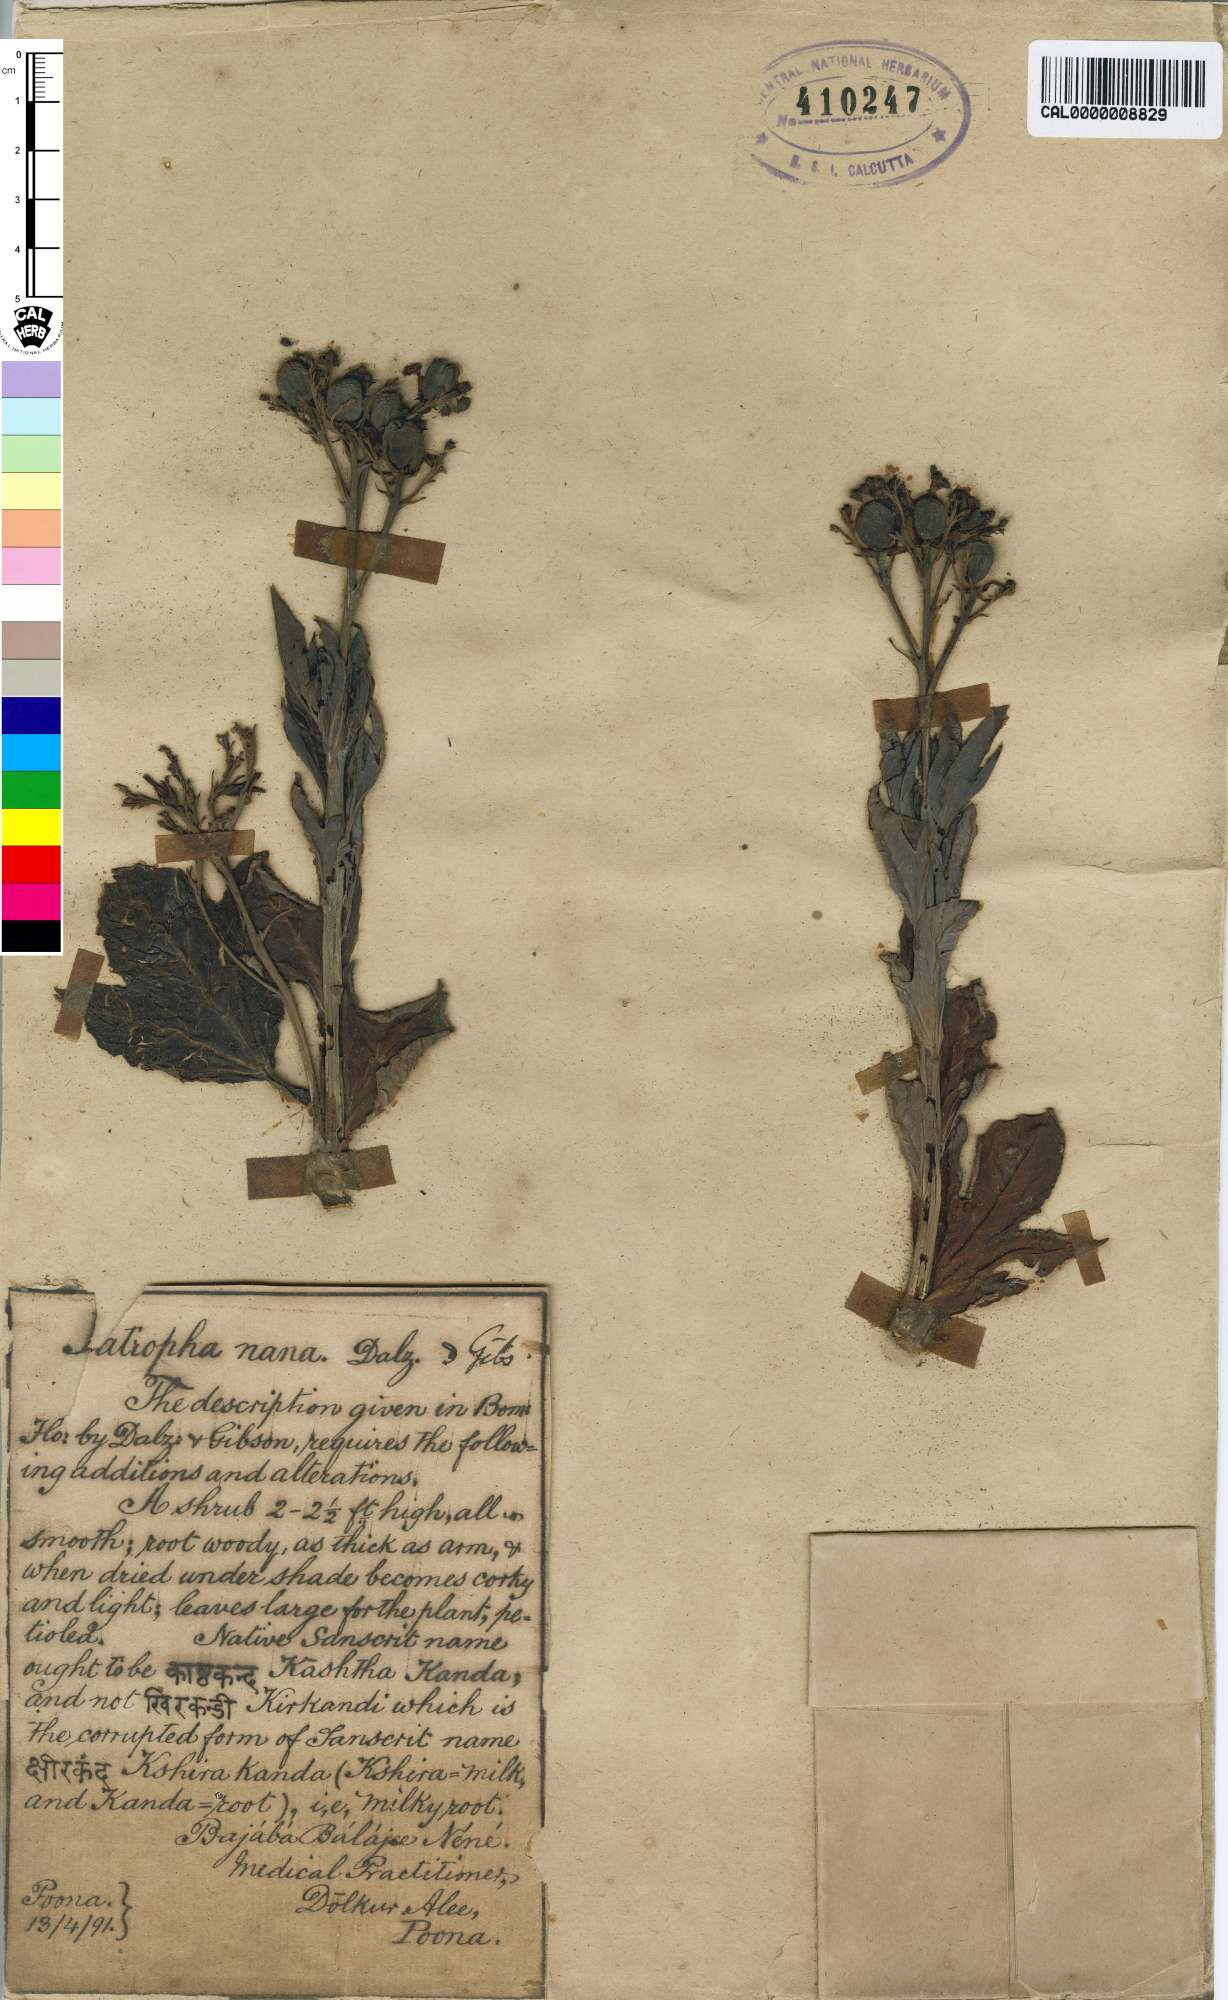 CENTRAL NATIONAL HERBARIUM
No 410247
B. S. I. CALCUTTA
CAL0000008829
0
cm
1
2
3
4
5
CAL
HERB
Jatropha nana. Dalz. & Gibs.
The description given in Bom:
Flo: by Dalz: & Gibson, requires the follow=
ing additions and alterations.
A shrub 2-2½ ft high, all
smooth; root woody, as thick as arm, &
when dried under shade becomes corky
and light; leaves large for the plant, pe-
tioled. Native Sanscrit name
ought to be काष्ठकन्द Kashtha Kanda;
and not खिरकन्डी Kirkandi which is
the corrupted form of Sanscrit name
क्षीरकंद Kshira Kanda (Kshira=milk,
and Kanda=root), i,e, milky root.
Bajábá Bálájee Néné.
Medical Practitioner,
Poona. Dōlkur Alee,
13/4/91. Poona.